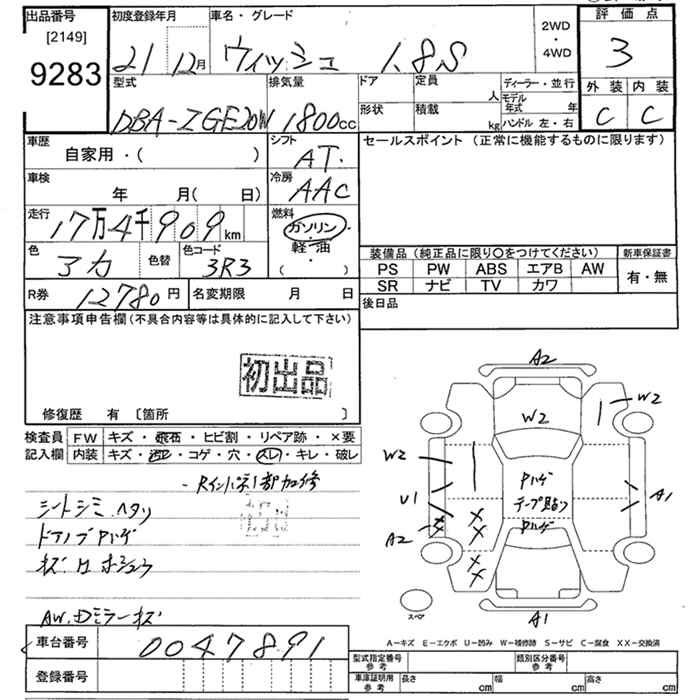 出品番号
[2149]
9283
初度登録年月
21 12月
車名・グレード
ウィッシュ 1.8S
2WD
・
4WD
評価点
3
外装 内装
C C
型式
DBA-ZGE20W
排気量
1800cc
ドア
形状
定員 人
積載 kg
ディーラー・並行
モデル年式 年
ハンドル 左・右
車歴
自家用・( )
シフト
AT.
セールスポイント (正常に機能するものに限ります)
車検
年 月( 日)
冷房
AAC
走行
17万4千909km
燃料
ガソリン・
軽・油
( )
色
アカ
色替
色コード
3R3
装備品(純正品に限り〇をつけてください)
新車保証書
PS PW ABS エアB AW
SR ナビ TV カワ
有・無
R券 12780円
名変期限 月 日
後日品
注意事項申告欄(不具合内容等は具体的に記入して下さい)
初出品
修復歴 有〔箇所 〕
検査員 FW キズ・飛石・ヒビ割・リペア跡・×要
記入欄 内装 キズ・汚レ・コゲ・穴・スレ・キレ・破レ
シートシミ ヘタリ
ドアノブPハゲ
キズ
AW.Dミラーキズ
A2
W2
W2
W2
U1
A2
Pハゲ
テープ貼り
Pハゲ
A1
A1
スペア
A-キズ E-エクボ U-凹み W-補修跡 S-サビ C-腐食 XX-交換済
車台番号 0047891
登録番号
型式指定番号
参考
類別区分番号
参考
車庫証明用
参考
長さ cm 幅 cm 高さ cm